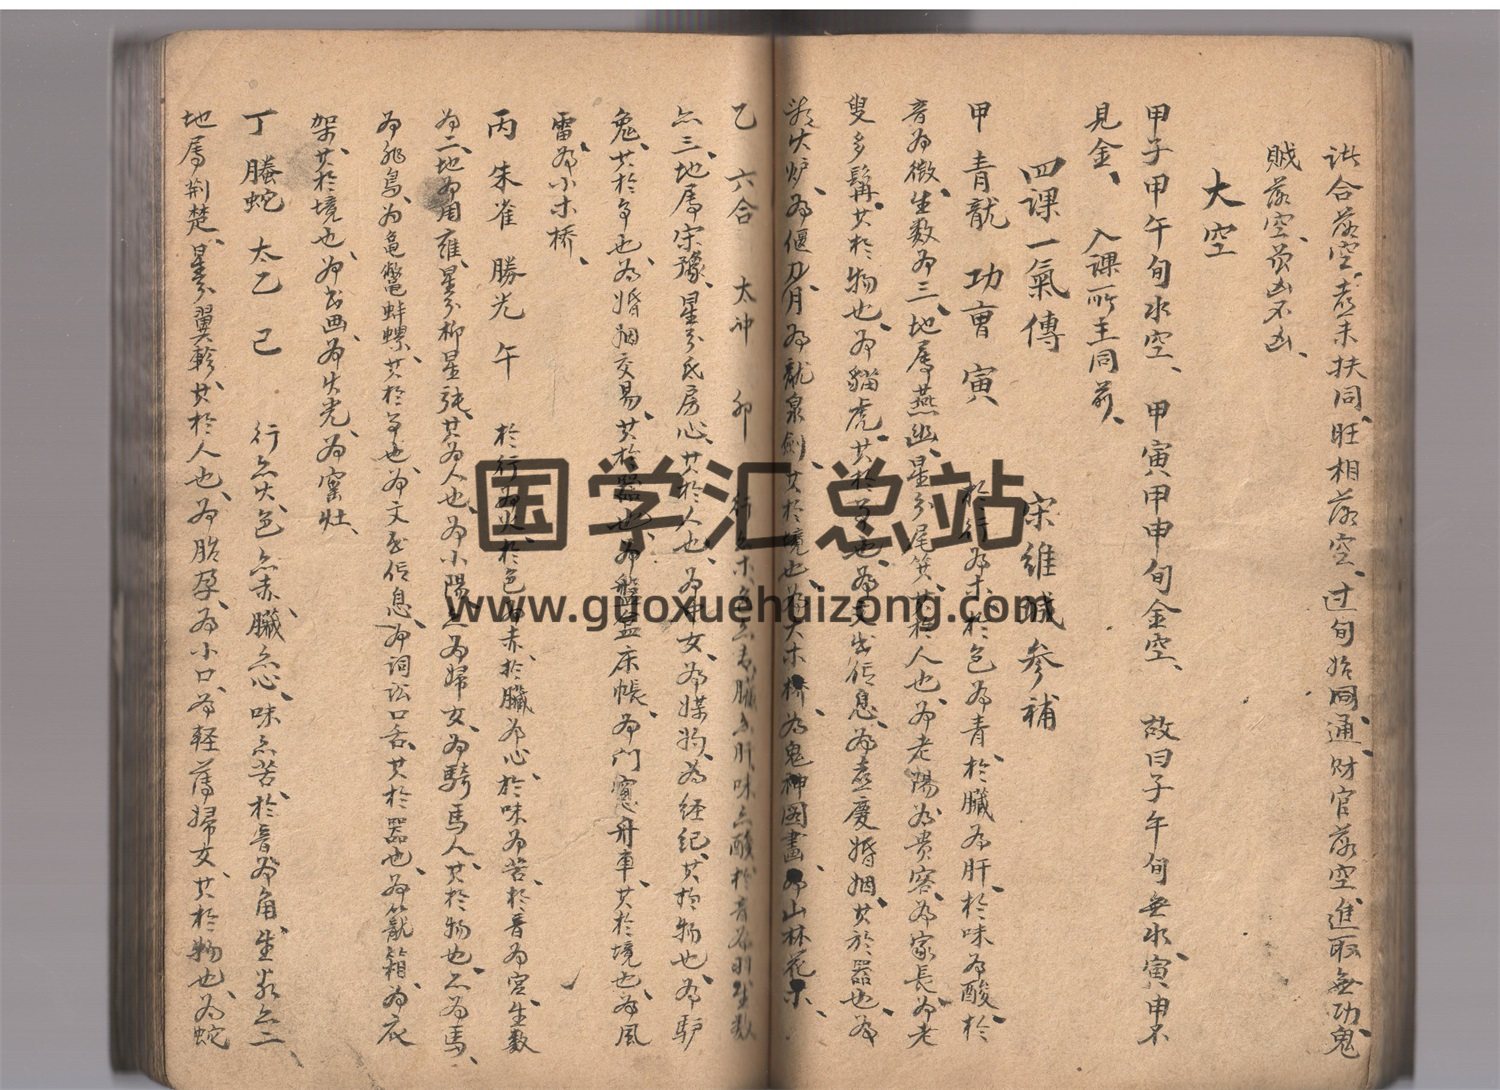 合落空
扶同、旺相落空、过旬始同通、财官落空、進取無功、鬼
賊落空、虽凶不凶、
大空
甲子甲午旬水空、甲寅甲申旬金空、故曰子午旬無水、寅申不
見金、入課所主同前、
四課一氣傳 宋維 参補
甲 青龍 功曹 寅 於行為木、於色為青、於臟為肝、於味為酸、於
音為徵、生数為三、地属燕幽、星分尾箕、其於人也、為老陽、為貴客、為家長、為老
叟多髯、其於物也、為貓虎、其於 也、為文书信息、為喜慶婚姻、其於器也、為
火炉、為偃刀月、為龍泉劍、其於境也、為大木橋、為鬼神図畫、為山林花木、
乙 六合 太冲 卯 行 木、色 青、臟 肝、味 酸、於音為羽、生数
三、地属宋豫、星分氐房心、其於人也、為中女、為媒妁、為经纪、其於物也、為驴
兔、其於 也、為婚姻交易、其於器也、為盤盂床帳、為門窓舟車、其於境也、為風
雷、為小木桥、
丙 朱雀 勝光 午 於行為火、於色為赤、於臟為心、於味為苦、於音為宮、生数
為二、地為周雍、星分柳星張、其為人也、為小陽、 為婦女、為騎馬人、其於物也、 為馬、
為飛鳥、為龜鱉蚌螺、其於 也、為文 信息、為詞讼口舌、其於器也、為籠箱、為衣
架、其於境也、為书画、為火光、為窯灶、
丁 螣蛇 太乙 巳 行 火、色 赤、臟 心、味 苦、於音為角、生 二
地属荆楚、星分翼軫、其於人也、為胎孕、為小口、為軽薄婦女、其於物也、為蛇
国学汇总站
www.guoxuehuizong.com